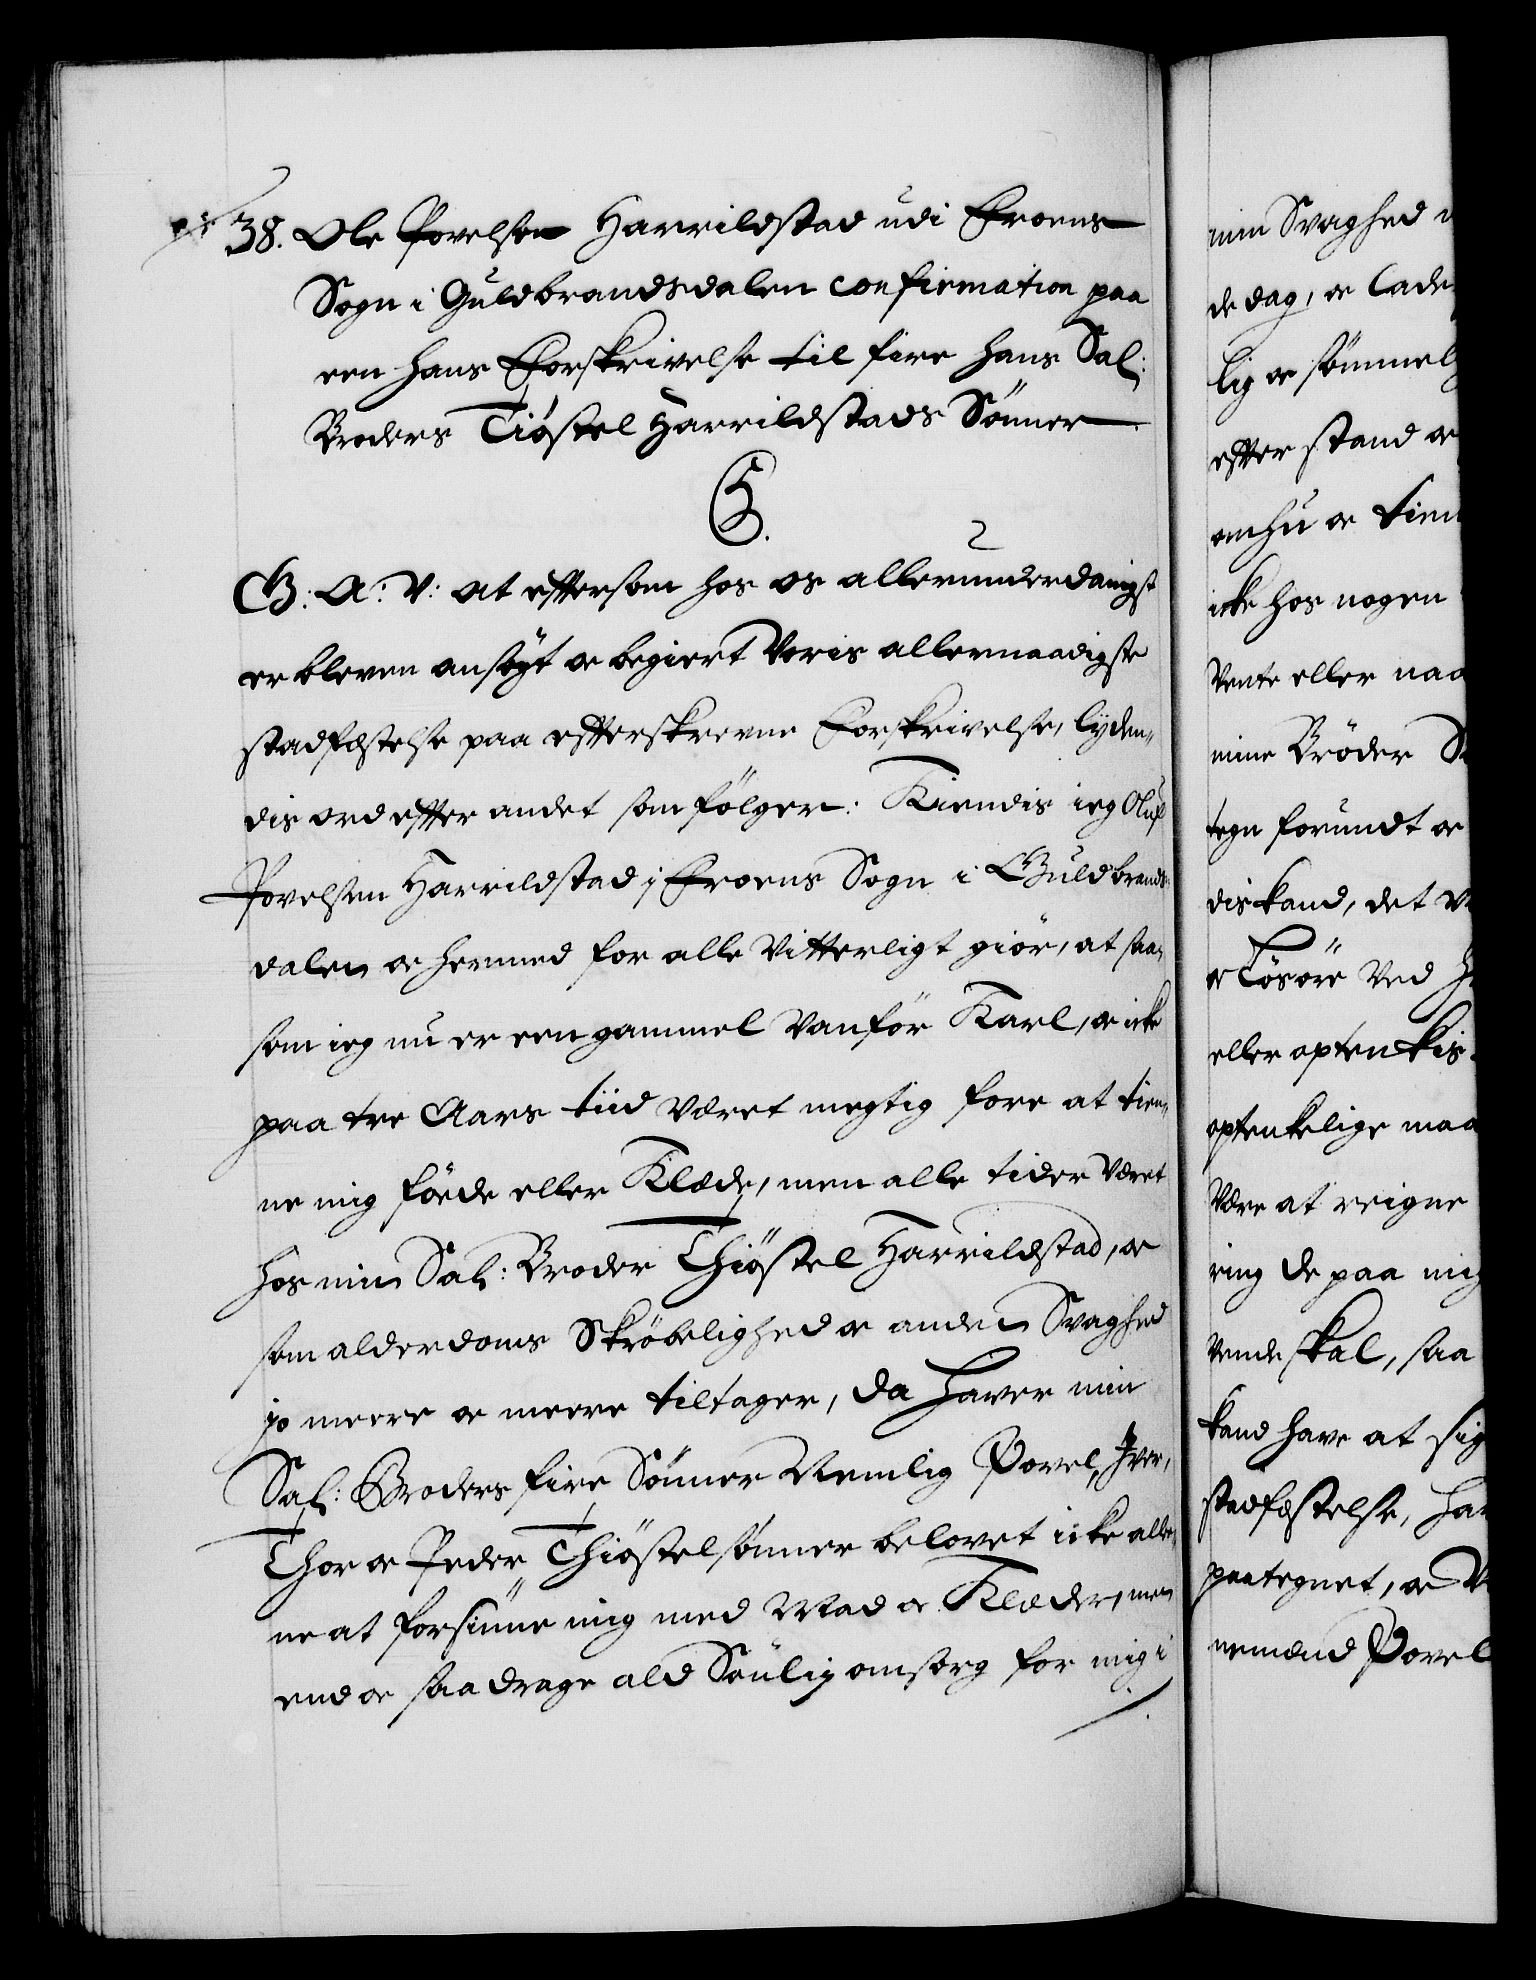 38. Ole Povelsen Harrildstad udi Froens
Sogn i Guldbrandsdalen confirmation paa
een hans Forskrivelse til fire hans Sal:
Broders Tiøstel Harrildstads Sønner.
G: A: V: at eftersom hos os allerunderdanigst
er bleven ansøgt oc begiert Voris allernaadigste
stadfestelse paa efterskrevne Forskrivelse, lyden„
dis ord efter andet som følger: Kiendis ieg Oluf
Povelsen Harrildstad i Froens Sogn i Guldbrands„
dalen oc hermed for alle Vitterligt giör, at saa„
som ieg nu er een gammel Vanför Karl, oc icke
paa tre Aars tiid Været megtig fore at tien„
ne mig föede eller Klæde, men alle tider Været
hos min Sal: Broder Thiøstel Harrildstad, oc
som alderdoms Skröbelighed oc anden Svaghed
jo meere oc meere tiltager, da haver min
Sal: Broders fire Sönner Nemlig Povel, Iver,
Thor oc Peder Thiøstelsønner belovet icke alle„
ne at forsiune mig med Mad oc Klæder, men
end oc saa drage ald Sönlig omsorg for mig i
min Svaghed
de dag, oc lade
lig oc sömmel
efter stand oc
omhu oc tien
icke hos nogen
Vente eller naa
mine Bröder
tegn forundt oc
dis kand, det
oc Løsøre Ved
eller optenkis
optenkelige maa
Være at reigne
ring de paa mig
Vende skal, saa
kand have at sig
stadfestelse, ha
paategnet, oc
nemænd Povel